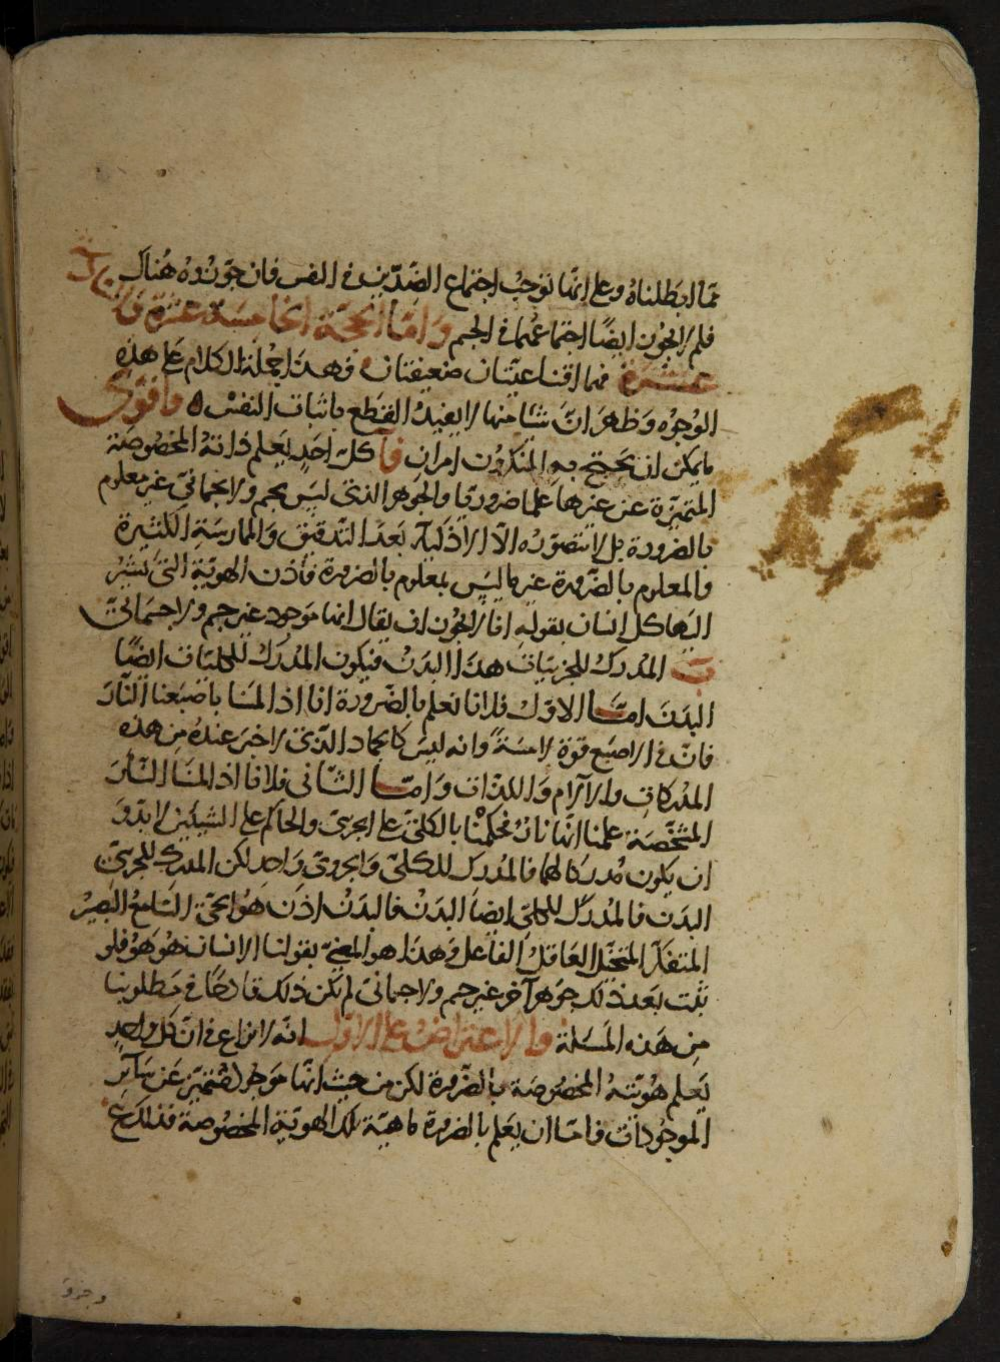 مما ابطلناه وعلى انها توجب اجتماع الضدين في النفس فان جوزوه هناك
فلم لا يجوز ايضا اجتماعهما في الجسم واما الحجة الخامسة عشرة
عشرة فهما اقناعيتان ضعيفتان فهذا جملة الكلام على هذه
الوجوه وظهر ان شيئا منها لا يفيد القطع باثبات النفس ه واقوى
ما يمكن ان يحتج به المنكرون امران آ كل احد يعلم ذاته المخصوصة
المتميزة عن غيرها علما ضروريا والجوهر الذي ليس بجسم ولا جسماني غير معلوم
بالضرورة بل لا يتصوره الا الاذكياء بعد التدقيق والممارسة الكثيرة
والمعلوم بالضرورة غير ما ليس بمعلوم بالضرورة فاذن الهوية التي يشير
اليها كل انسان بقوله انا لا يجوز ان يقال انها موجود غير جسم ولا جسماني
ب المدرك للجزييات هذا البدن فيكون المدرك للكليات ايضا
البدن اما الاول فلانا نعلم بالضرورة انا اذا لمسنا باصبعنا النار
فان في الاصبع قوة لامسة وانه ليس كالجماد الذي لا خبر عنده من هذه
المدركات والالام واللذات واما الثاني فلانا اذا لمسنا النار
المشخصة علمنا انها نار فحكمنا بالكلي على الجزئي والحاكم على الشيئين لا بد و
ان يكون مدركا لهما فالمدرك للكلي والجزوي واحد لكن المدرك للجزئي
البدن فالمدرك للكلي ايضا البدن فالبدن اذن هو الحي السامع البصير
المتفكر المتخيل العاقل الفاعل وهذا هو المعني بقولنا الانسان هو هو فلو
ثبت بعد ذلك جوهر آخر غير جسم ولا جسماني لم يكن ذلك قادحا في مطلوبنا
من هذه المسلة والاعتراض على الاول انه لا نزاع في ان كل واحد
يعلم هويته المخصوصة بالضرورة لكن من حيث انها موجود متميز عن سائر
الموجودات فاما ان يعلم بالضرورة ماهية تلك الهوية المخصوصة فذلك